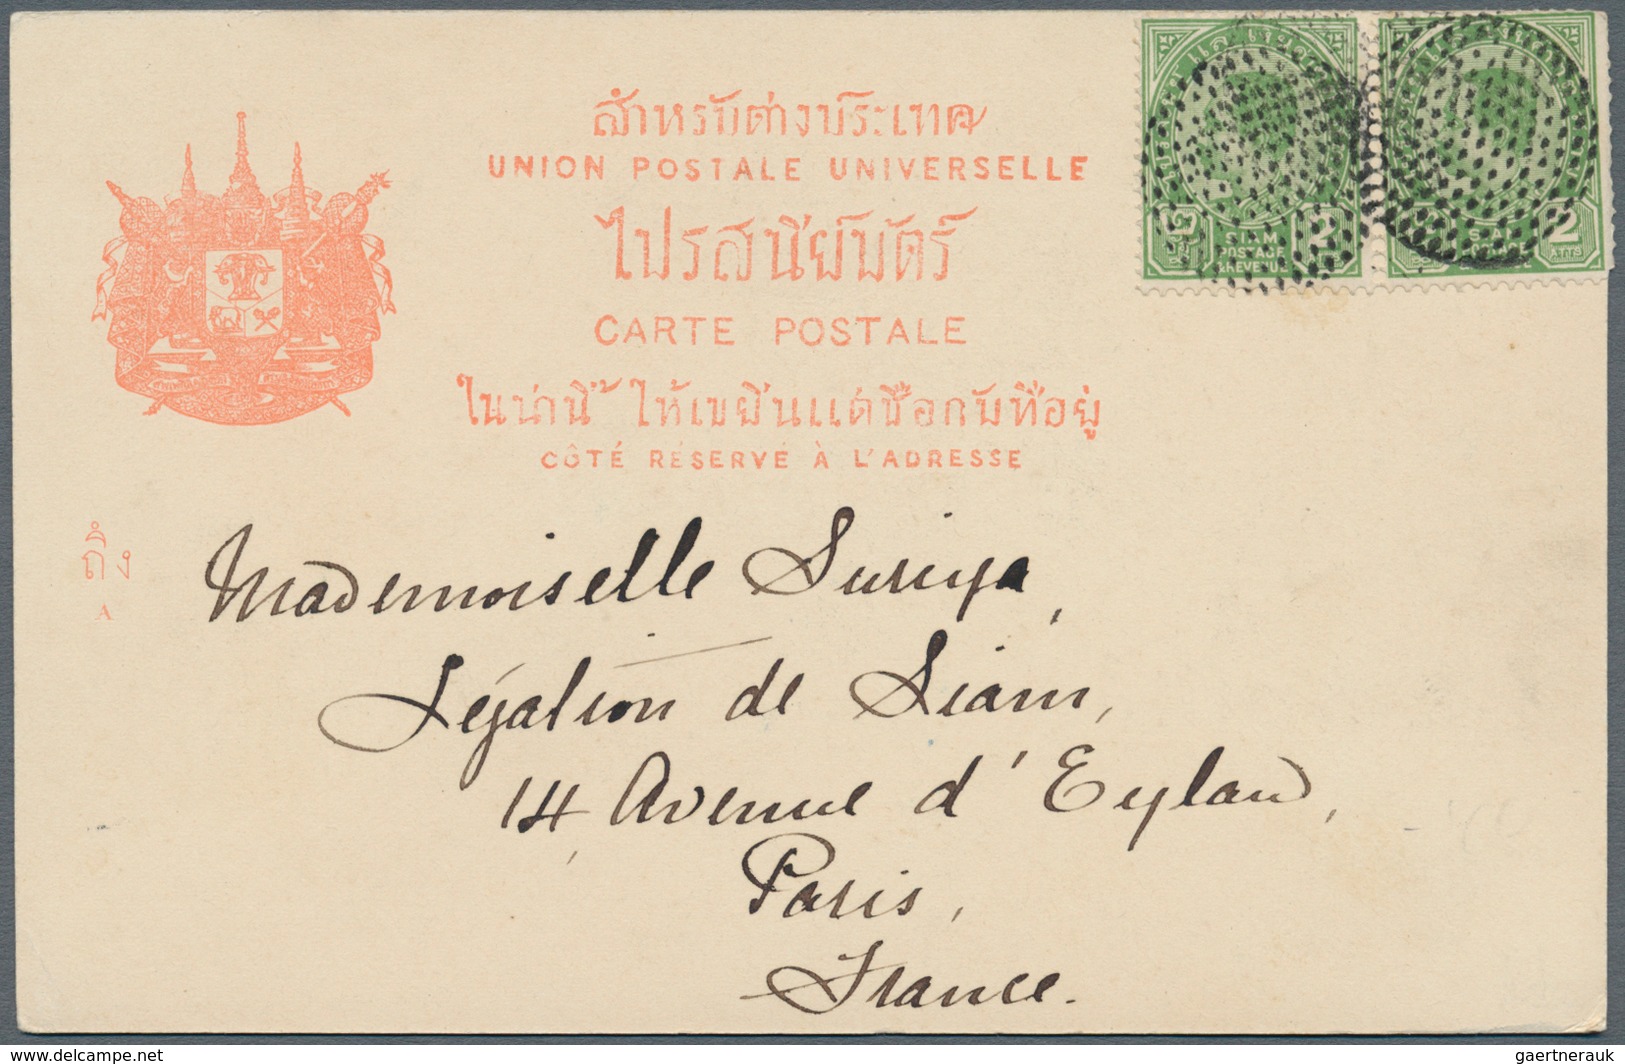 สำหรับต่างประเทศ
UNION POSTALE UNIVERSELLE
ไปรสนีย์บัตร์
CARTE POSTALE
ในน่านี้ ให้เขียนแต่ชื่อกับที่อยู่
CÔTÉ RÉSERVÉ À L'ADRESSE
SIAM
POSTAGE
& REVENUE
2
2
ATTS
ถึง
A
Mademoiselle Suriya,
Légation de Siam,
14 Avenue d'Eylau,
Paris,
France.
www.delcampe.net
gaertnerauk